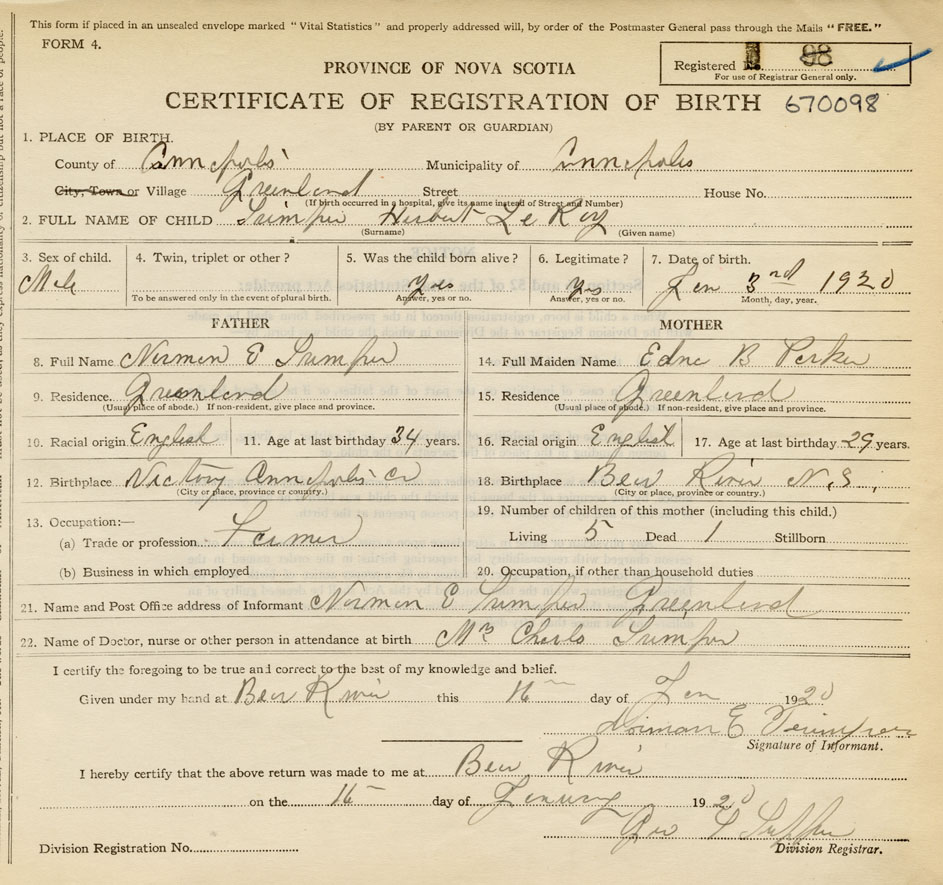 This form if placed in an unsealed envelope marked "Vital Statistics" and properly addressed will, by order of the Postmaster General pass through the Mails "FREE."
FORM 4.
Registered No. 98
For use of Registrar General only.
PROVINCE OF NOVA SCOTIA
CERTIFICATE OF REGISTRATION OF BIRTH 670098
(BY PARENT OR GUARDIAN)
1. PLACE OF BIRTH.
County of Annapolis Municipality of Annapolis
City, Town or Village Greenland Street House No.
(If birth occurred in a hospital, give its name instead of Street and Number)
2. FULL NAME OF CHILD Trimper Herbert Le Roy
(Surname) (Given name)
3. Sex of child. 4. Twin, triplet or other? 5. Was the child born alive? 6. Legitimate? 7. Date of birth.
Male Yes Yes Jan 3rd 1920
To be answered only in the event of plural birth. Answer, yes or no. Answer, yes or no. Month, day, year.
FATHER MOTHER
8. Full Name Norman E Trimper 14. Full Maiden Name Edna B Parker
9. Residence. Greenland 15. Residence Greenland
(Usual place of abode.) If non-resident, give place and province. (Usual place of abode.) If non-resident, give place and province.
10. Racial origin English 11. Age at last birthday 34 years. 16. Racial origin English 17. Age at last birthday 29 years.
12. Birthplace Victory Annapolis Co 18. Birthplace Bear River N.S.
(City or place, province or country.) (City or place, province or country.)
13. Occupation:— 19. Number of children of this mother (including this child.)
(a) Trade or profession Farmer Living 5 Dead 1 Stillborn
(b) Business in which employed 20. Occupation, if other than household duties
21. Name and Post Office address of Informant Norman E Trimper Greenland
22. Name of Doctor, nurse or other person in attendance at birth Mrs Charls Trimper
I certify the foregoing to be true and correct to the best of my knowledge and belief.
Given under my hand at Bear River this 16 day of Jan 1920
Norman E Trimper
Signature of Informant.
I hereby certify that the above return was made to me at Bear River
on the 16 day of January 1920
Division Registration No. Division Registrar.